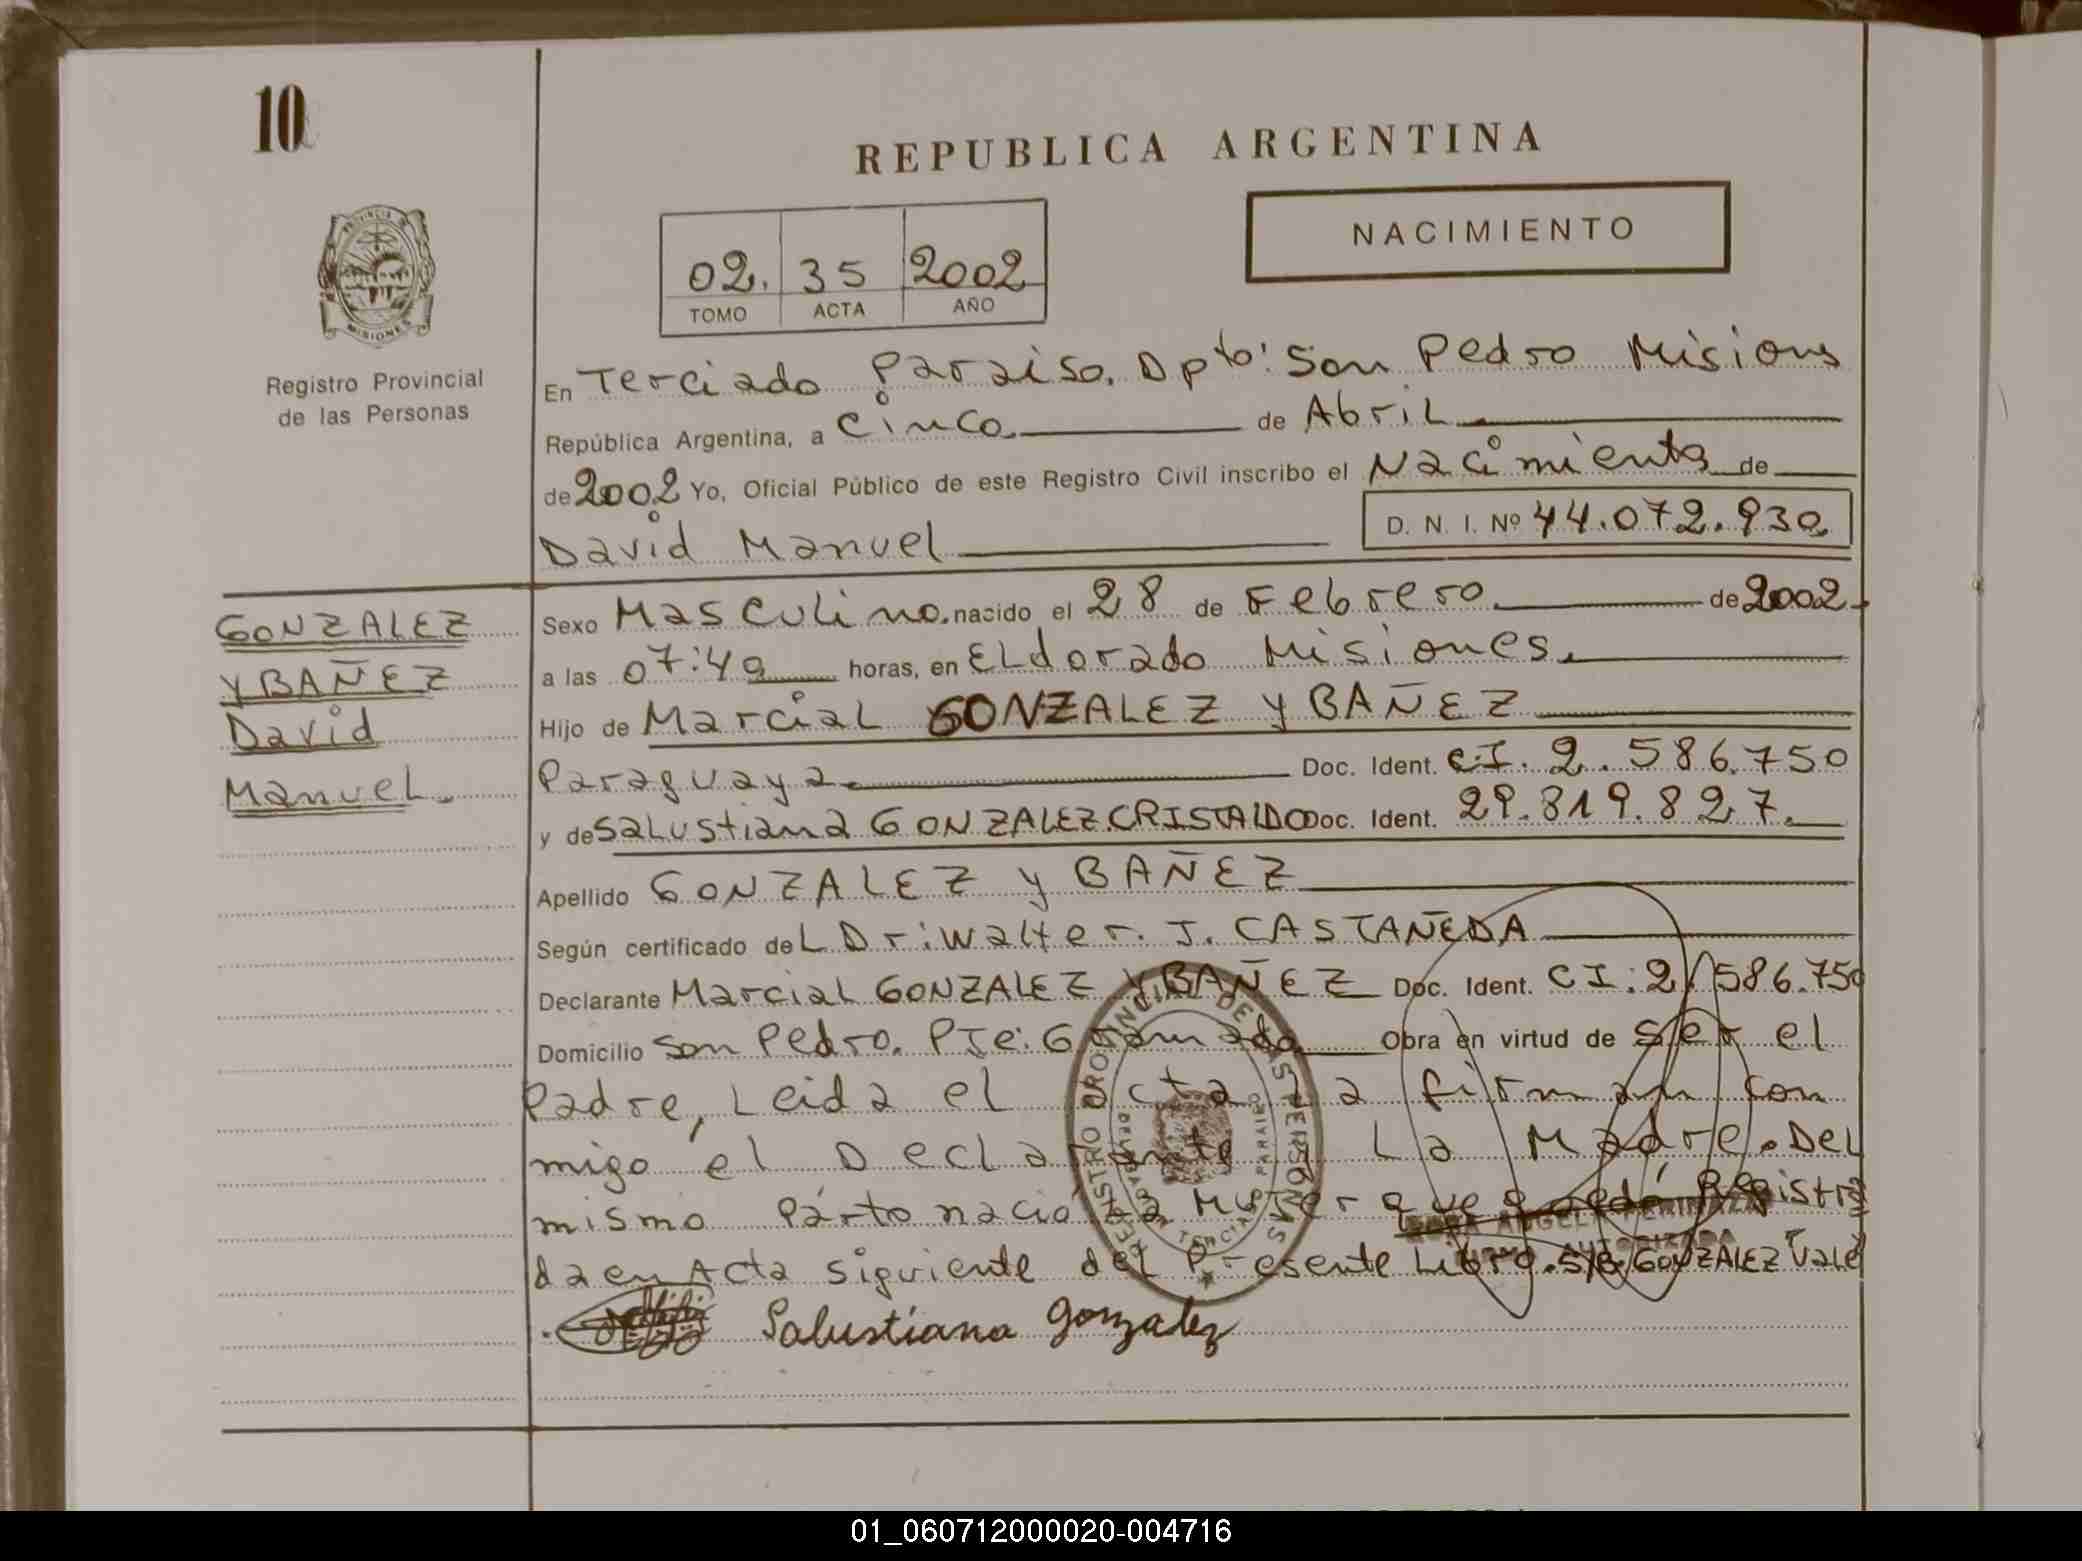 10
REPUBLICA ARGENTINA
NACIMIENTO
02. 35 2002
TOMO ACTA AÑO
PROVINCIA DE MISIONES
Registro Provincial
de las Personas
En Terciado Paraiso. Dpto: San Pedro Misions
República Argentina, a Cinco de Abril
de 2002 Yo, Oficial Público de este Registro Civil inscribo el Nacimiento de
D. N. I. Nº 44.072.930
David Manuel
GONZALEZ
YBAÑEZ
David
Manuel.
Sexo Masculino. nacido el 28 de Febrero de 2002
a las 07:40 horas, en ELdorado Misiones.
Hijo de Marcial GONZALEZ YBAÑEZ
Paraguaya. Doc. Ident. C.I. 2.586.750
y de Salustiana GONZALEZ CRISTALDO Doc. Ident. 29.819.827.
Apellido GONZALEZ YBAÑEZ
Según certificado deL Dr: Walter. J. CASTAÑEDA
Declarante Marcial GONZALEZ YBAÑEZ Doc. Ident. CI: 2.586.750
Domicilio San Pedro. PJe: Gramado Obra en virtud de ser el
Padre, Leida el acta la firman con
migo el Declarante y La Madre. Del
mismo Parto nació la Mujer que quedó Registra
da en Acta siguiente del Presente Libro. S/B. GONZALEZ Vale
Salustiana Gonzalez
REGISTRO PROVINCIAL DE LAS PERSONAS
TERCIADO PARAISO
01_060712000020-004716